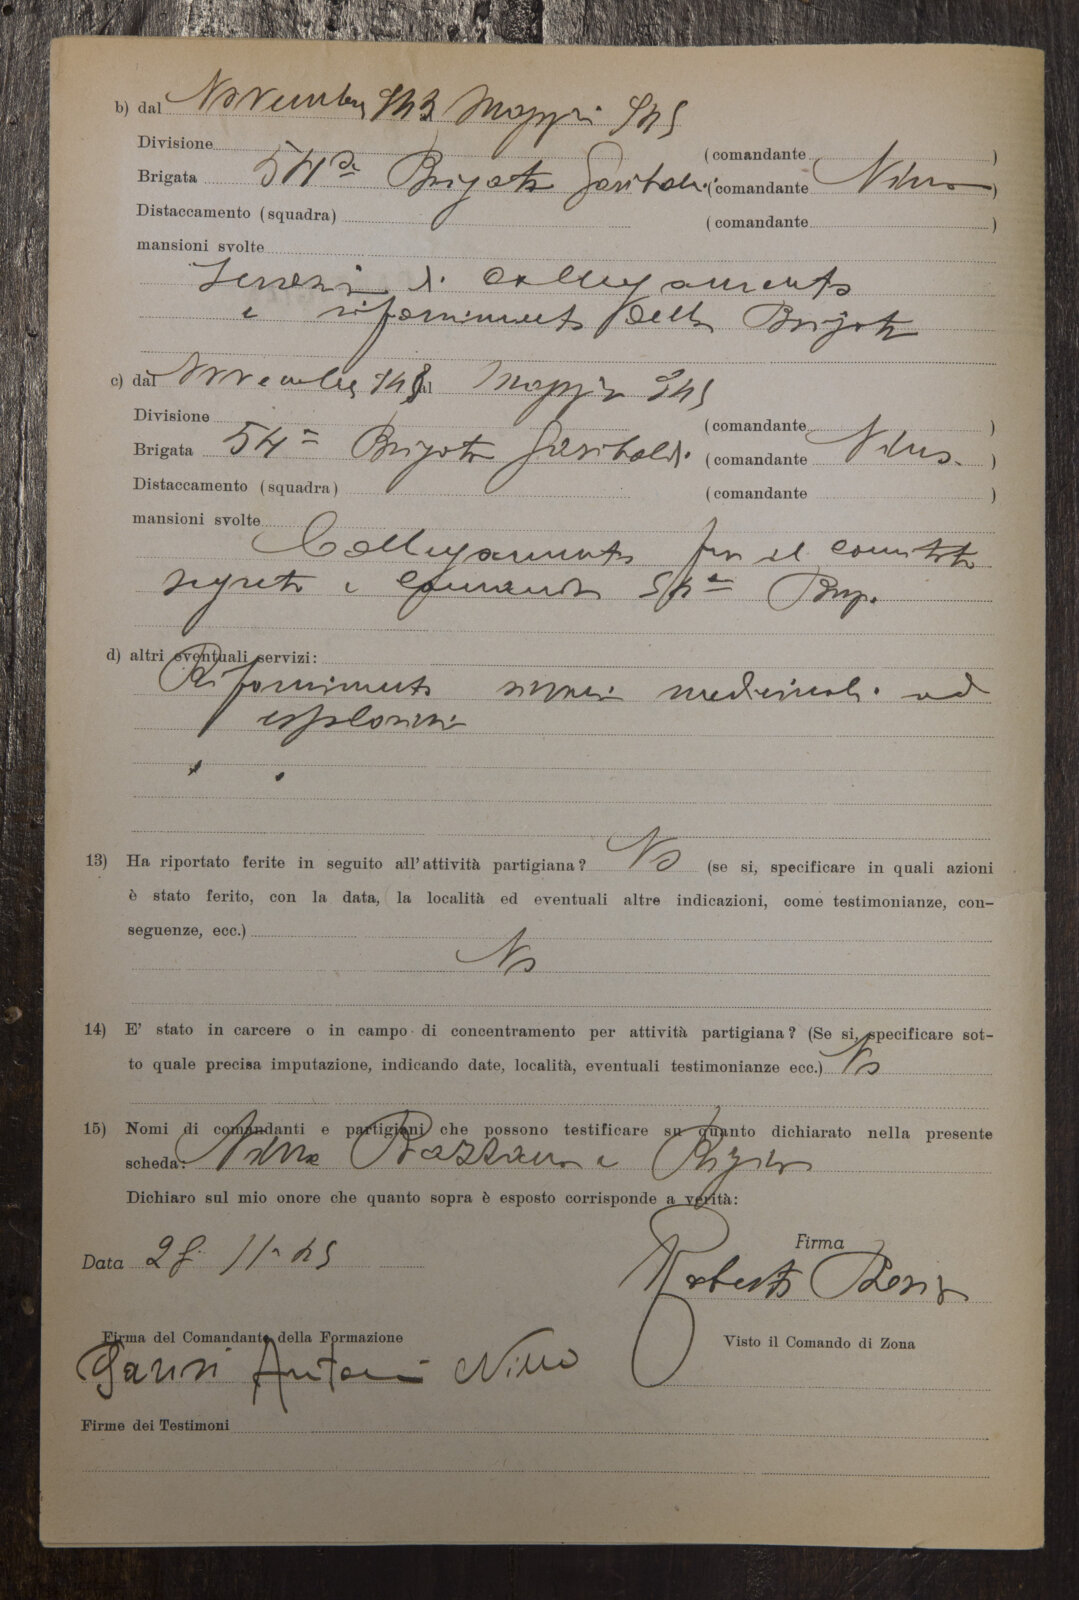 b) dal Novembre 943 Maggio 945
Divisione (comandante )
Brigata 54a Brigata Garibaldi (comandante Nino )
Distaccamento (squadra) (comandante )
mansioni svolte
Servizi di collegamento
e rifornimento della Brigata
c) dal Novembre 943 al Maggio 945
Divisione (comandante )
Brigata 54a Brigata Garibaldi (comandante Nino. )
Distaccamento (squadra) (comandante )
mansioni svolte
Collegamento fra il comitato
segreto e comando 54a Brig.
d) altri eventuali servizi:
Rifornimento medicinali ed
esplosivi
13) Ha riportato ferite in seguito all'attività partigiana? No (se si, specificare in quali azioni
è stato ferito, con la data, la località ed eventuali altre indicazioni, come testimonianze, con-
seguenze, ecc.)
No
14) E' stato in carcere o in campo di concentramento per attività partigiana? (Se si, specificare sot-
to quale precisa imputazione, indicando date, località, eventuali testimonianze ecc.) No
15) Nomi di comandanti e partigiani che possono testificare su quanto dichiarato nella presente
scheda: Nino e
Dichiaro sul mio onore che quanto sopra è esposto corrisponde a verità:
Firma
Data 28-11-45
Roberto
Firma del Comandante della Formazione
Visto il Comando di Zona
Antonio Nino
Firme dei Testimoni